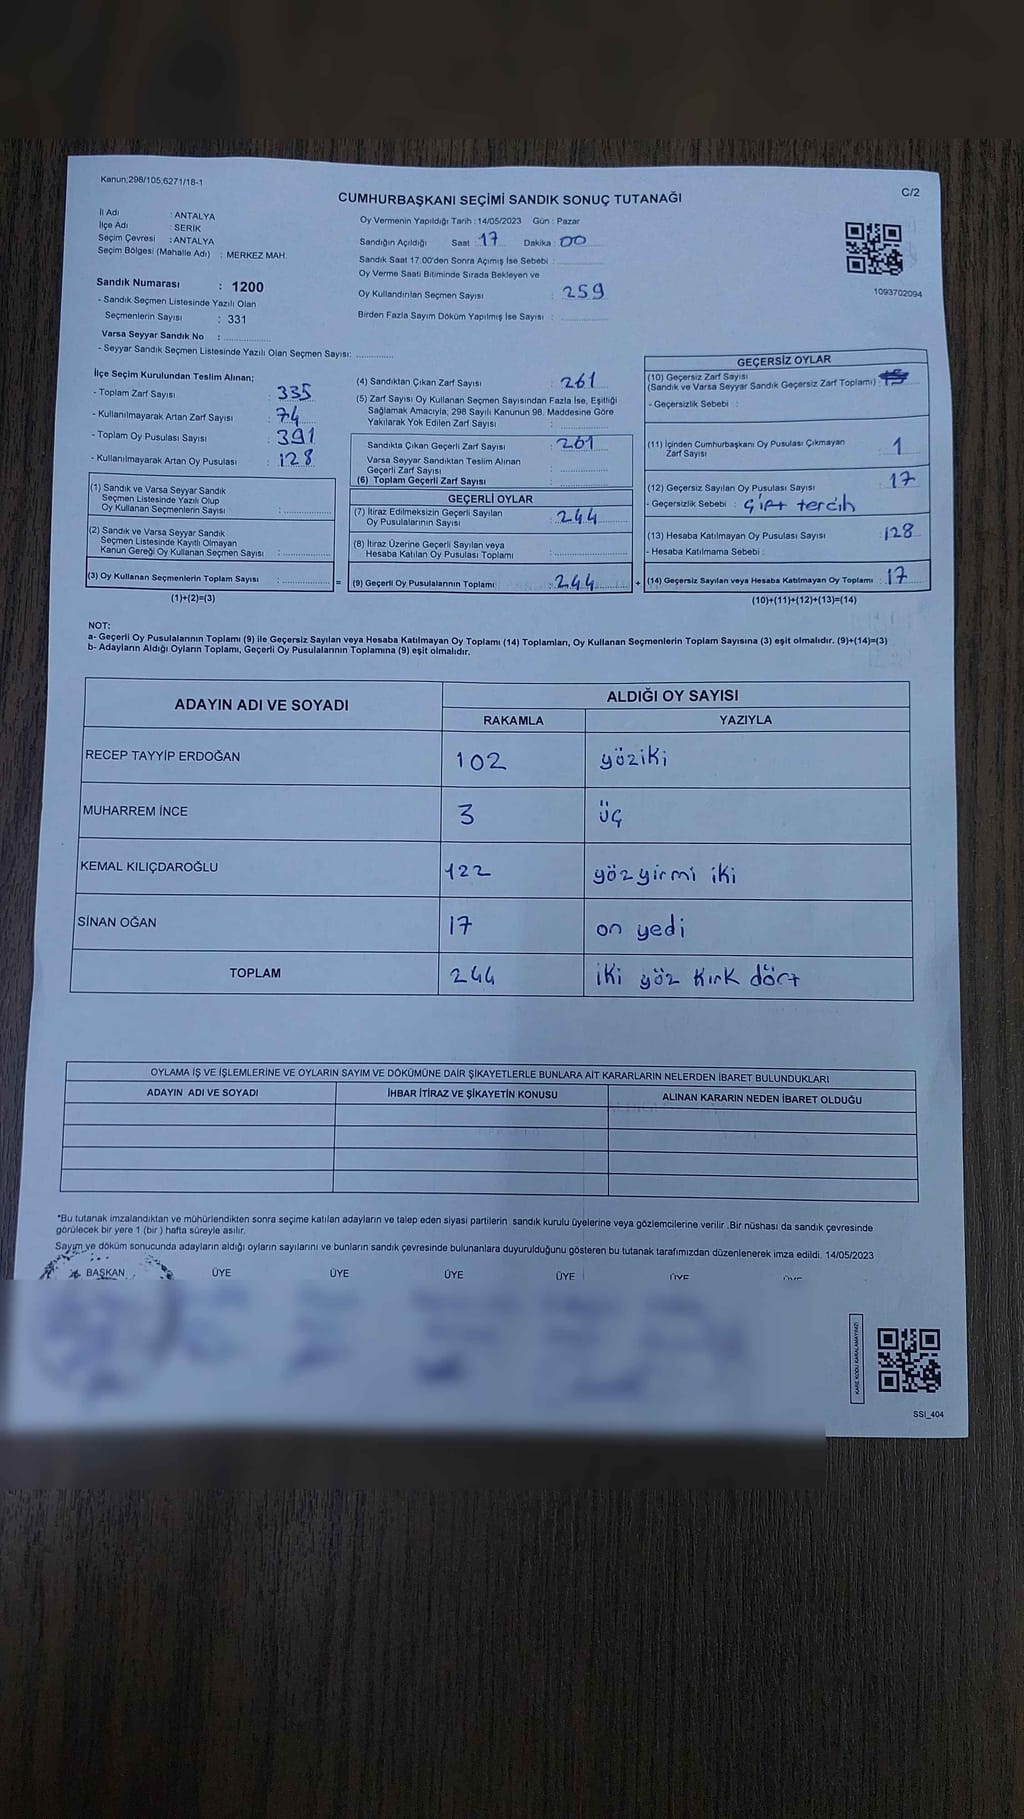 Kanun;298/105;6271/18-1
C/2
CUMHURBAŞKANI SEÇİMİ SANDIK SONUÇ TUTANAĞI
İl Adı : ANTALYA
İlçe Adı : SERİK
Seçim Çevresi : ANTALYA
Seçim Bölgesi (Mahalle Adı) : MERKEZ MAH.
Sandık Numarası : 1200
- Sandık Seçmen Listesinde Yazılı Olan
Seçmenlerin Sayısı : 331
Varsa Seyyar Sandık No :
- Seyyar Sandık Seçmen Listesinde Yazılı Olan Seçmen Sayısı:
Oy Vermenin Yapıldığı Tarih : 14/05/2023 Gün : Pazar
Sandığın Açıldığı Saat : 17 Dakika : 00
Sandık Saat 17:00'den Sonra Açımış İse Sebebi :
Oy Verme Saati Bitiminde Sırada Bekleyen ve
Oy Kullandırılan Seçmen Sayısı : 259
Birden Fazla Sayım Döküm Yapılmış İse Sayısı :
1093702094
İlçe Seçim Kurulundan Teslim Alınan;
- Toplam Zarf Sayısı : 335
- Kullanılmayarak Artan Zarf Sayısı : 74
- Toplam Oy Pusulası Sayısı : 391
- Kullanılmayarak Artan Oy Pusulası : 128
(1) Sandık ve Varsa Seyyar Sandık
Seçmen Listesinde Yazılı Olup
Oy Kullanan Seçmenlerin Sayısı :
(2) Sandık ve Varsa Seyyar Sandık
Seçmen Listesinde Kayıtlı Olmayan
Kanun Gereği Oy Kullanan Seçmen Sayısı :
(3) Oy Kullanan Seçmenlerin Toplam Sayısı : =
(1)+(2)=(3)
(4) Sandıktan Çıkan Zarf Sayısı : 261
(5) Zarf Sayısı Oy Kullanan Seçmen Sayısından Fazla İse, Eşitliği
Sağlamak Amacıyla, 298 Sayılı Kanunun 98. Maddesine Göre
Yakılarak Yok Edilen Zarf Sayısı :
Sandıkta Çıkan Geçerli Zarf Sayısı : 261
Varsa Seyyar Sandıktan Teslim Alınan
Geçerli Zarf Sayısı :
(6) Toplam Geçerli Zarf Sayısı :
GEÇERLİ OYLAR
(7) İtiraz Edilmeksizin Geçerli Sayılan
Oy Pusulalarının Sayısı : 244
(8) İtiraz Üzerine Geçerli Sayılan veya
Hesaba Katılan Oy Pusulası Toplamı :
(9) Geçerli Oy Pusulalarının Toplamı : 244 +
GEÇERSİZ OYLAR
(10) Geçersiz Zarf Sayısı
(Sandık ve Varsa Seyyar Sandık Geçersiz Zarf Toplamı) :
- Geçersizlik Sebebi :
(11) İçinden Cumhurbaşkanı Oy Pusulası Çıkmayan
Zarf Sayısı : 1
(12) Geçersiz Sayılan Oy Pusulası Sayısı : 17
- Geçersizlik Sebebi : Çift tercih
(13) Hesaba Katılmayan Oy Pusulası Sayısı : 128
- Hesaba Katılmama Sebebi :
(14) Geçersiz Sayılan veya Hesaba Katılmayan Oy Toplamı : 17
(10)+(11)+(12)+(13)=(14)
NOT:
a- Geçerli Oy Pusulalarının Toplamı (9) ile Geçersiz Sayılan veya Hesaba Katılmayan Oy Toplamı (14) Toplamları, Oy Kullanan Seçmenlerin Toplam Sayısına (3) eşit olmalıdır. (9)+(14)=(3)
b- Adayların Aldığı Oyların Toplamı, Geçerli Oy Pusulalarının Toplamına (9) eşit olmalıdır.
ADAYIN ADI VE SOYADI ALDIĞI OY SAYISI
RAKAMLA YAZIYLA
RECEP TAYYİP ERDOĞAN 102 yöziki
MUHARREM İNCE 3 üç
KEMAL KILIÇDAROĞLU 122 yözyirmi iki
SİNAN OĞAN 17 on yedi
TOPLAM 244 iki yöz kırk dört
OYLAMA İŞ VE İŞLEMLERİNE VE OYLARIN SAYIM VE DÖKÜMÜNE DAİR ŞİKAYETLERLE BUNLARA AİT KARARLARIN NELERDEN İBARET BULUNDUKLARI
ADAYIN ADI VE SOYADI İHBAR İTİRAZ VE ŞİKAYETİN KONUSU ALINAN KARARIN NEDEN İBARET OLDUĞU
*Bu tutanak imzalandıktan ve mühürlendikten sonra seçime katılan adayların ve talep eden siyasi partilerin sandık kurulu üyelerine veya gözlemcilerine verilir .Bir nüshası da sandık çevresinde
görülecek bir yere 1 (bir ) hafta süreyle asılır.
Sayım ve döküm sonucunda adayların aldığı oyların sayılarını ve bunların sandık çevresinde bulunanlara duyurulduğunu gösteren bu tutanak tarafımızdan düzenlenerek imza edildi. 14/05/2023
BAŞKAN ÜYE ÜYE ÜYE ÜYE ÜYE ÜYE
KARE KODU KARALAMAYINIZ!
SSI_404